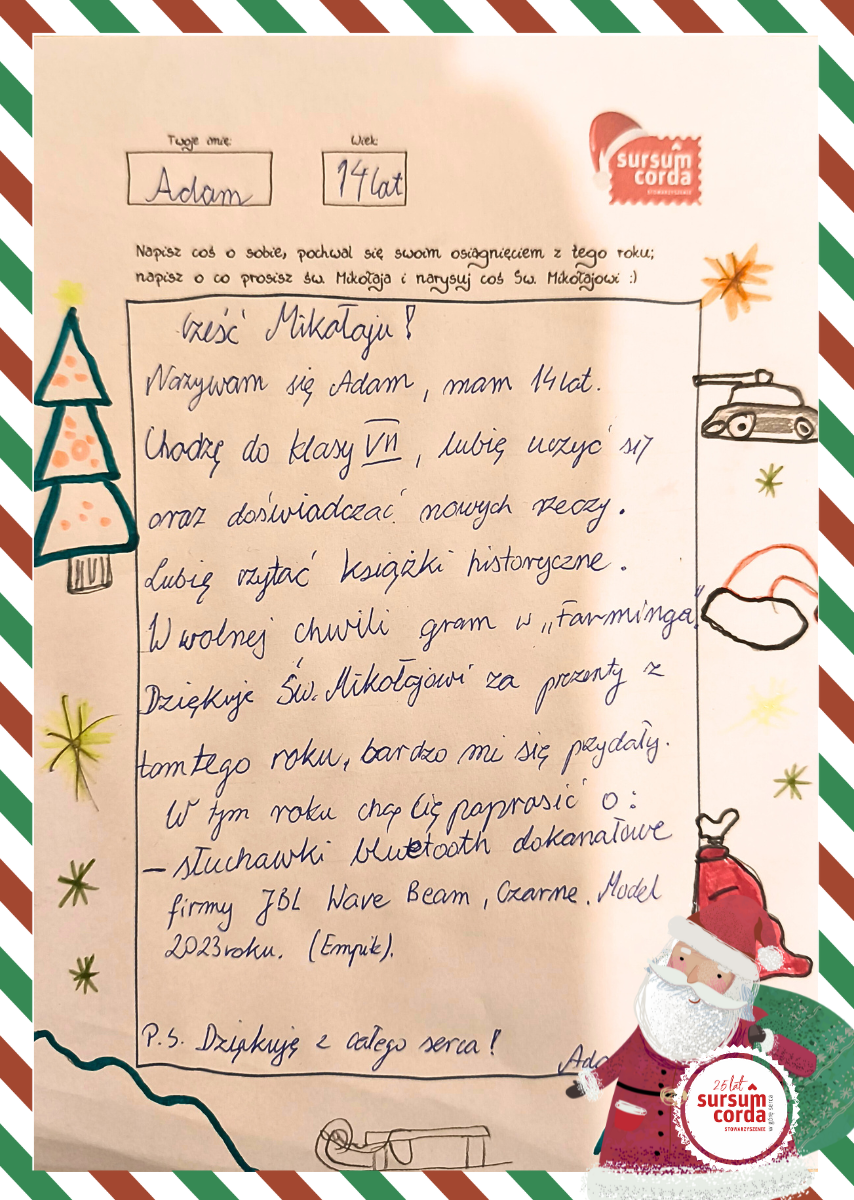 Twoje imię:
Wiek:
Adam
14 lat
sursum
corda
STOWARZYSZENIE
Napisz coś o sobie, pochwal się swoim osiągnięciem z tego roku;
napisz o co prosisz św. Mikołaja i narysuj coś Św. Mikołajowi :)
Cześć Mikołaju!
Nazywam się Adam, mam 14 lat.
Chodzę do klasy VII, lubię uczyć się
oraz doświadczać nowych rzeczy.
Lubię czytać książki historyczne.
W wolnej chwili gram w „Farminga”
Dziękuje Św. Mikołajowi za prezenty z
tamtego roku, bardzo mi się przydały.
W tym roku chcę Cię poprosić o:
– słuchawki bluetooth dokanałowe
firmy JBL Wave Beam, Czarne. Model
2023 roku. (Empik).
P.S. Dziękuję z całego serca!
Ada
26 lat
sursum
corda
STOWARZYSZENIE
w górę serca